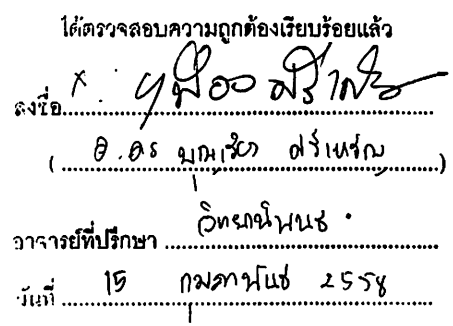 ได้ตรวจสอบความถูกต้องเรียบร้อยแล้ว
ลงชื่อ x.
( อ.ดร บุญเรือง ศรีเหรัญ )
อาจารย์ที่ปรึกษา วิทยานิพนธ์
วันที่ 15 กุมภาพันธ์ 2558